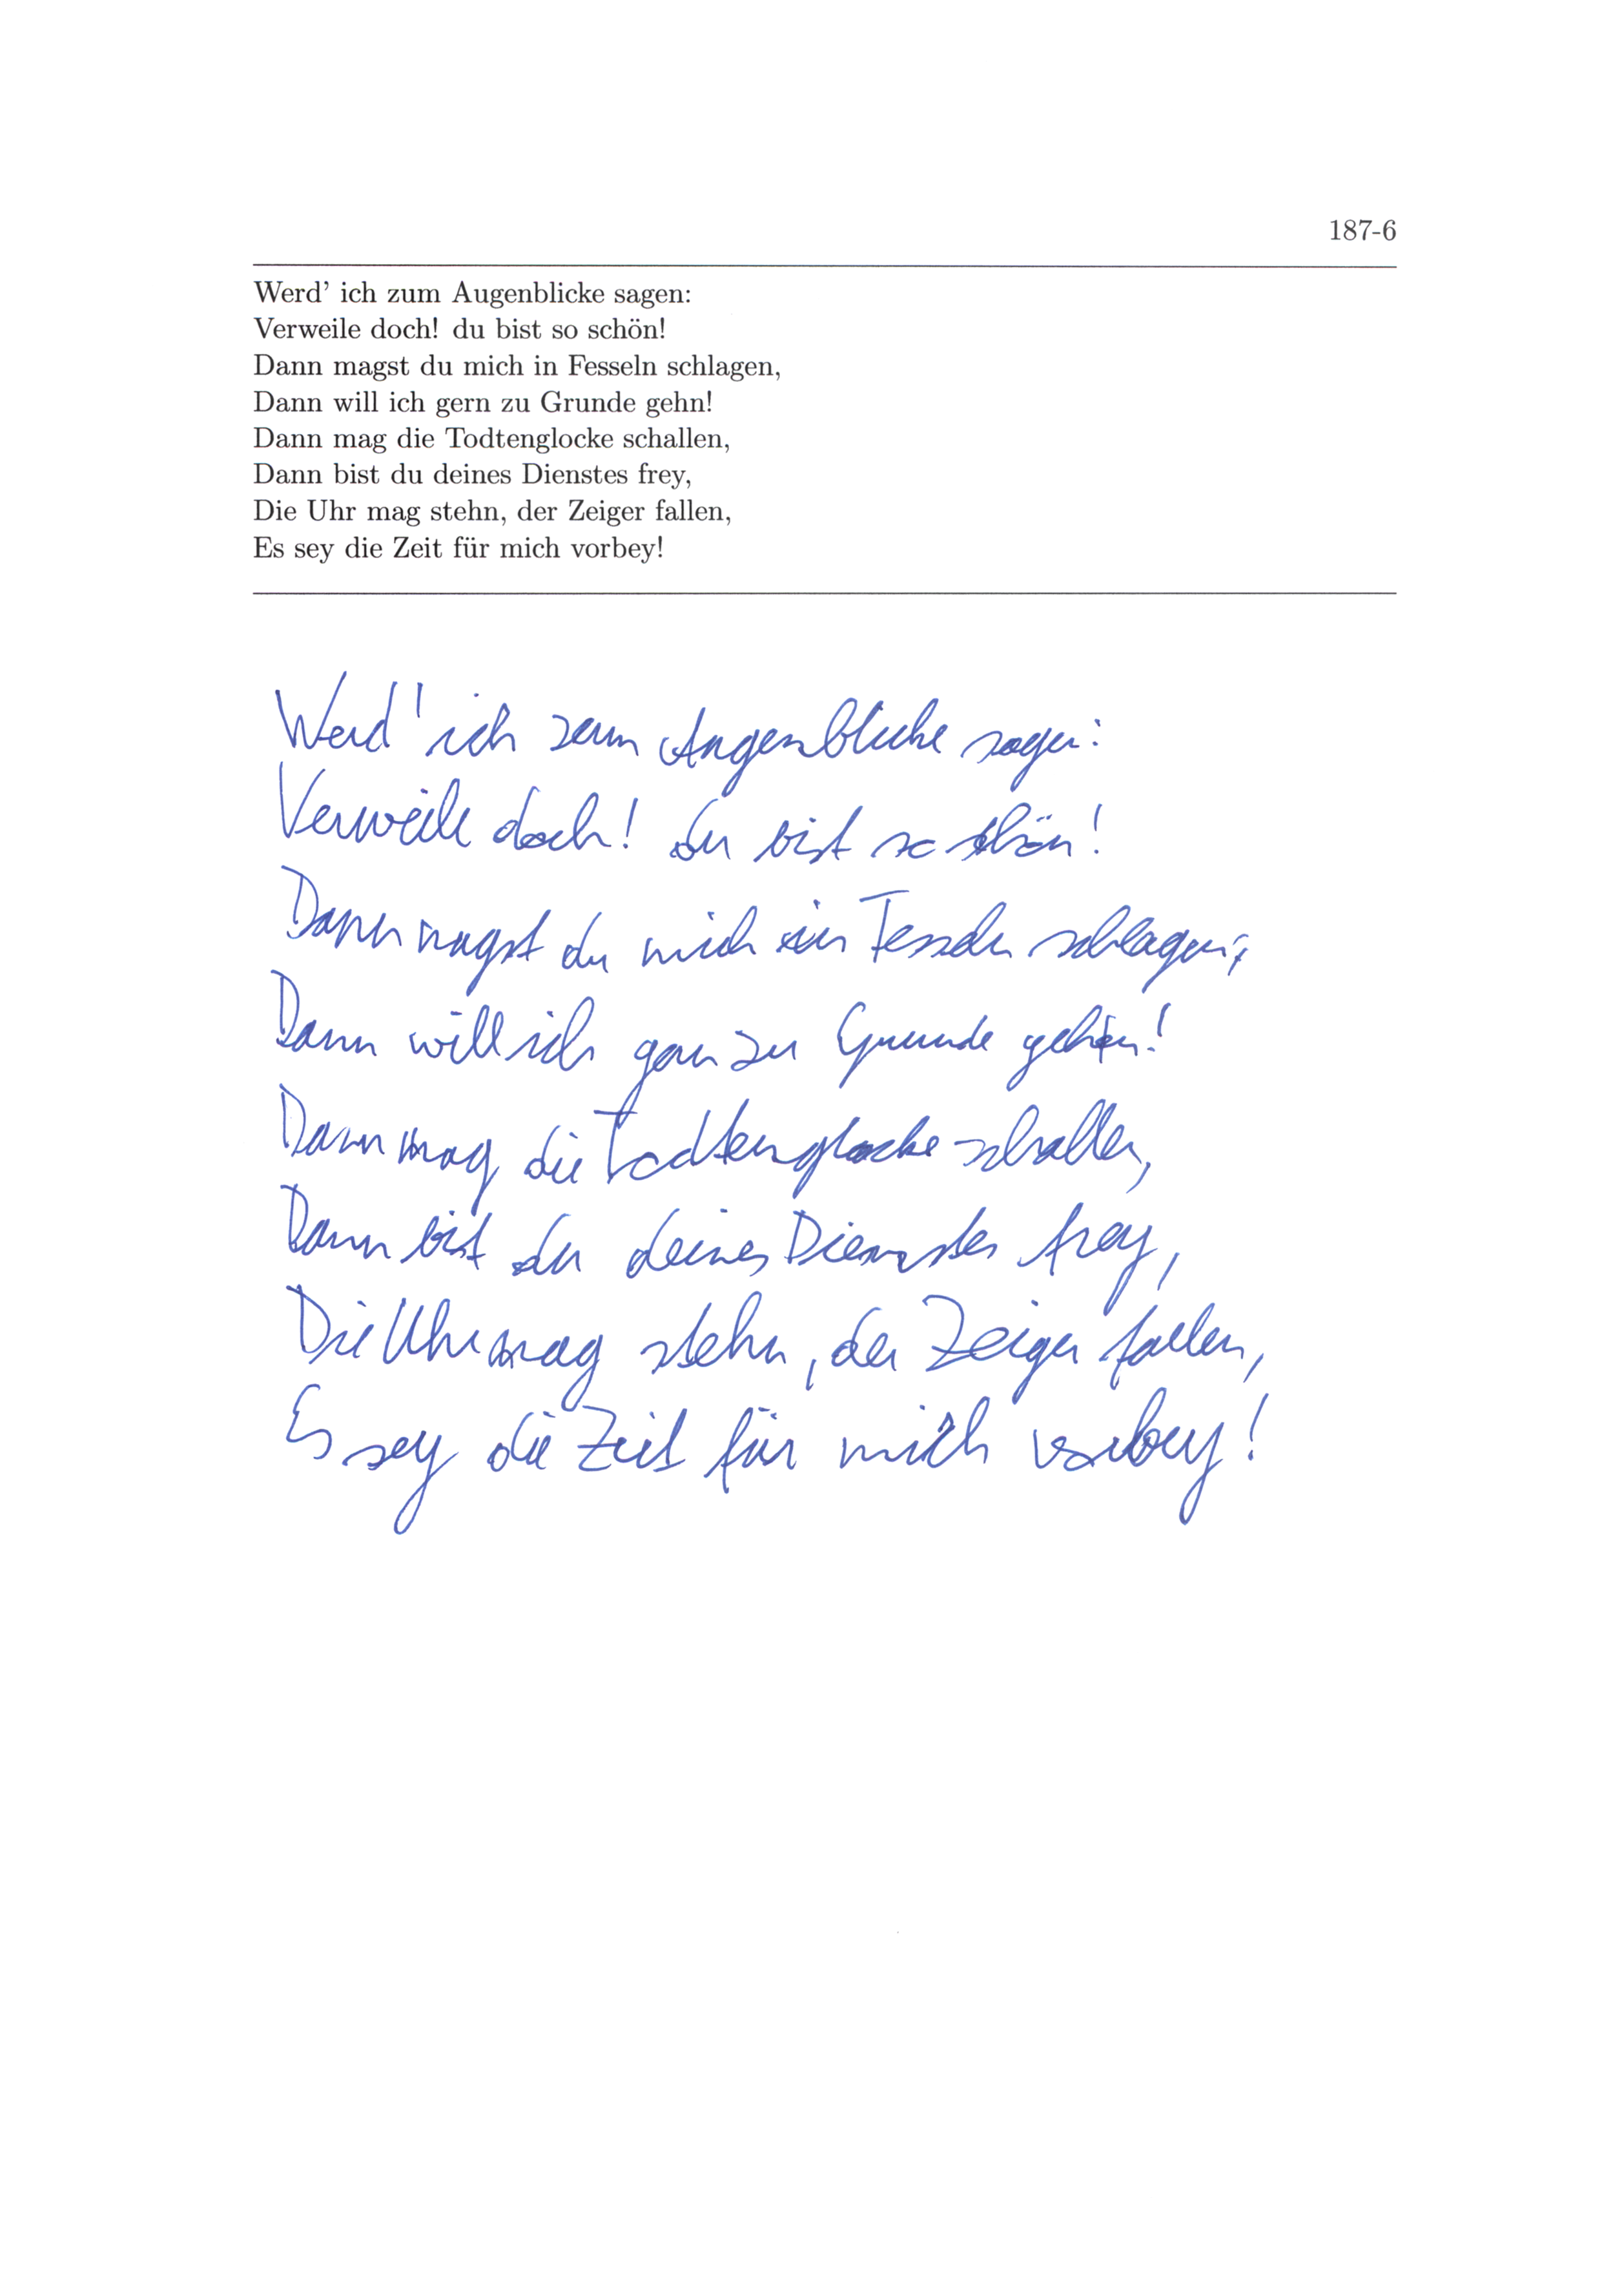 187-6
Werd' ich zum Augenblicke sagen:
Verweile doch! du bist so schön!
Dann magst du mich in Fesseln schlagen,
Dann will ich gern zu Grunde gehn!
Dann mag die Todtenglocke schallen,
Dann bist du deines Dienstes frey,
Die Uhr mag stehn, der Zeiger fallen,
Es sey die Zeit für mich vorbey!
Werd' ich zum Augenblicke sagen:
Verweile doch! du bist so schön!
Dann magst du mich in Fesseln schlagen,
Dann will ich gern zu Grunde gehn!
Dann mag die Todtenglocke schallen,
Dann bist du deines Dienstes frey,
Die Uhr mag stehn, der Zeiger fallen,
Es sey die Zeit für mich vorbey!